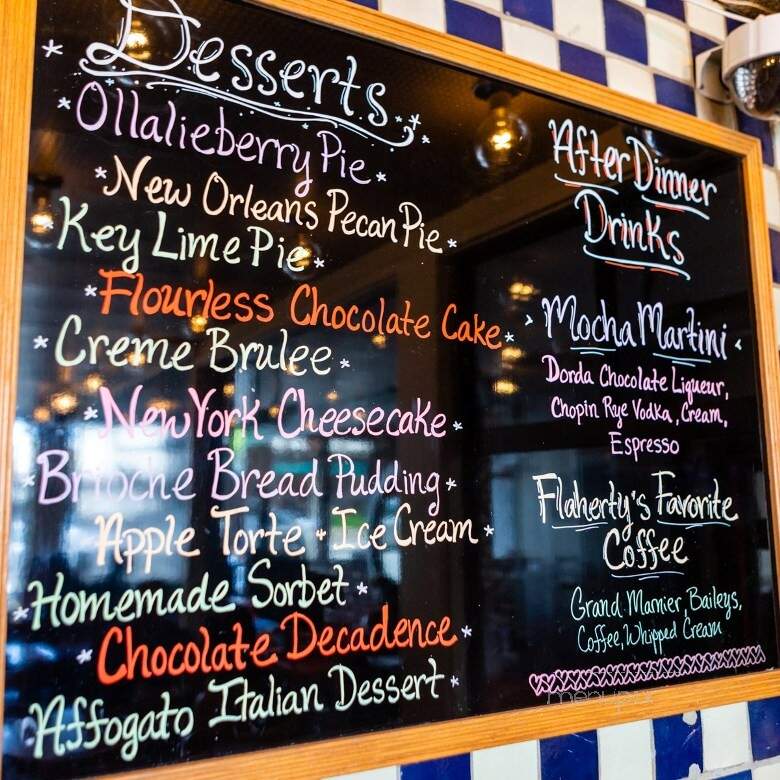 Desserts
Ollalieberry Pie
New Orleans Pecan Pie
Key Lime Pie
Flourless Chocolate Cake
Creme Brulee
New York Cheesecake
Brioche Bread Pudding
Apple Torte + Ice Cream
Homemade Sorbet
Chocolate Decadence
Affogato Italian Dessert
After Dinner
Drinks
Mocha Martini
Dorda Chocolate Liqueur,
Chopin Rye Vodka, Cream,
Espresso
Flaherty's Favorite
Coffee
Grand Marnier, Baileys,
Coffee, Whipped Cream